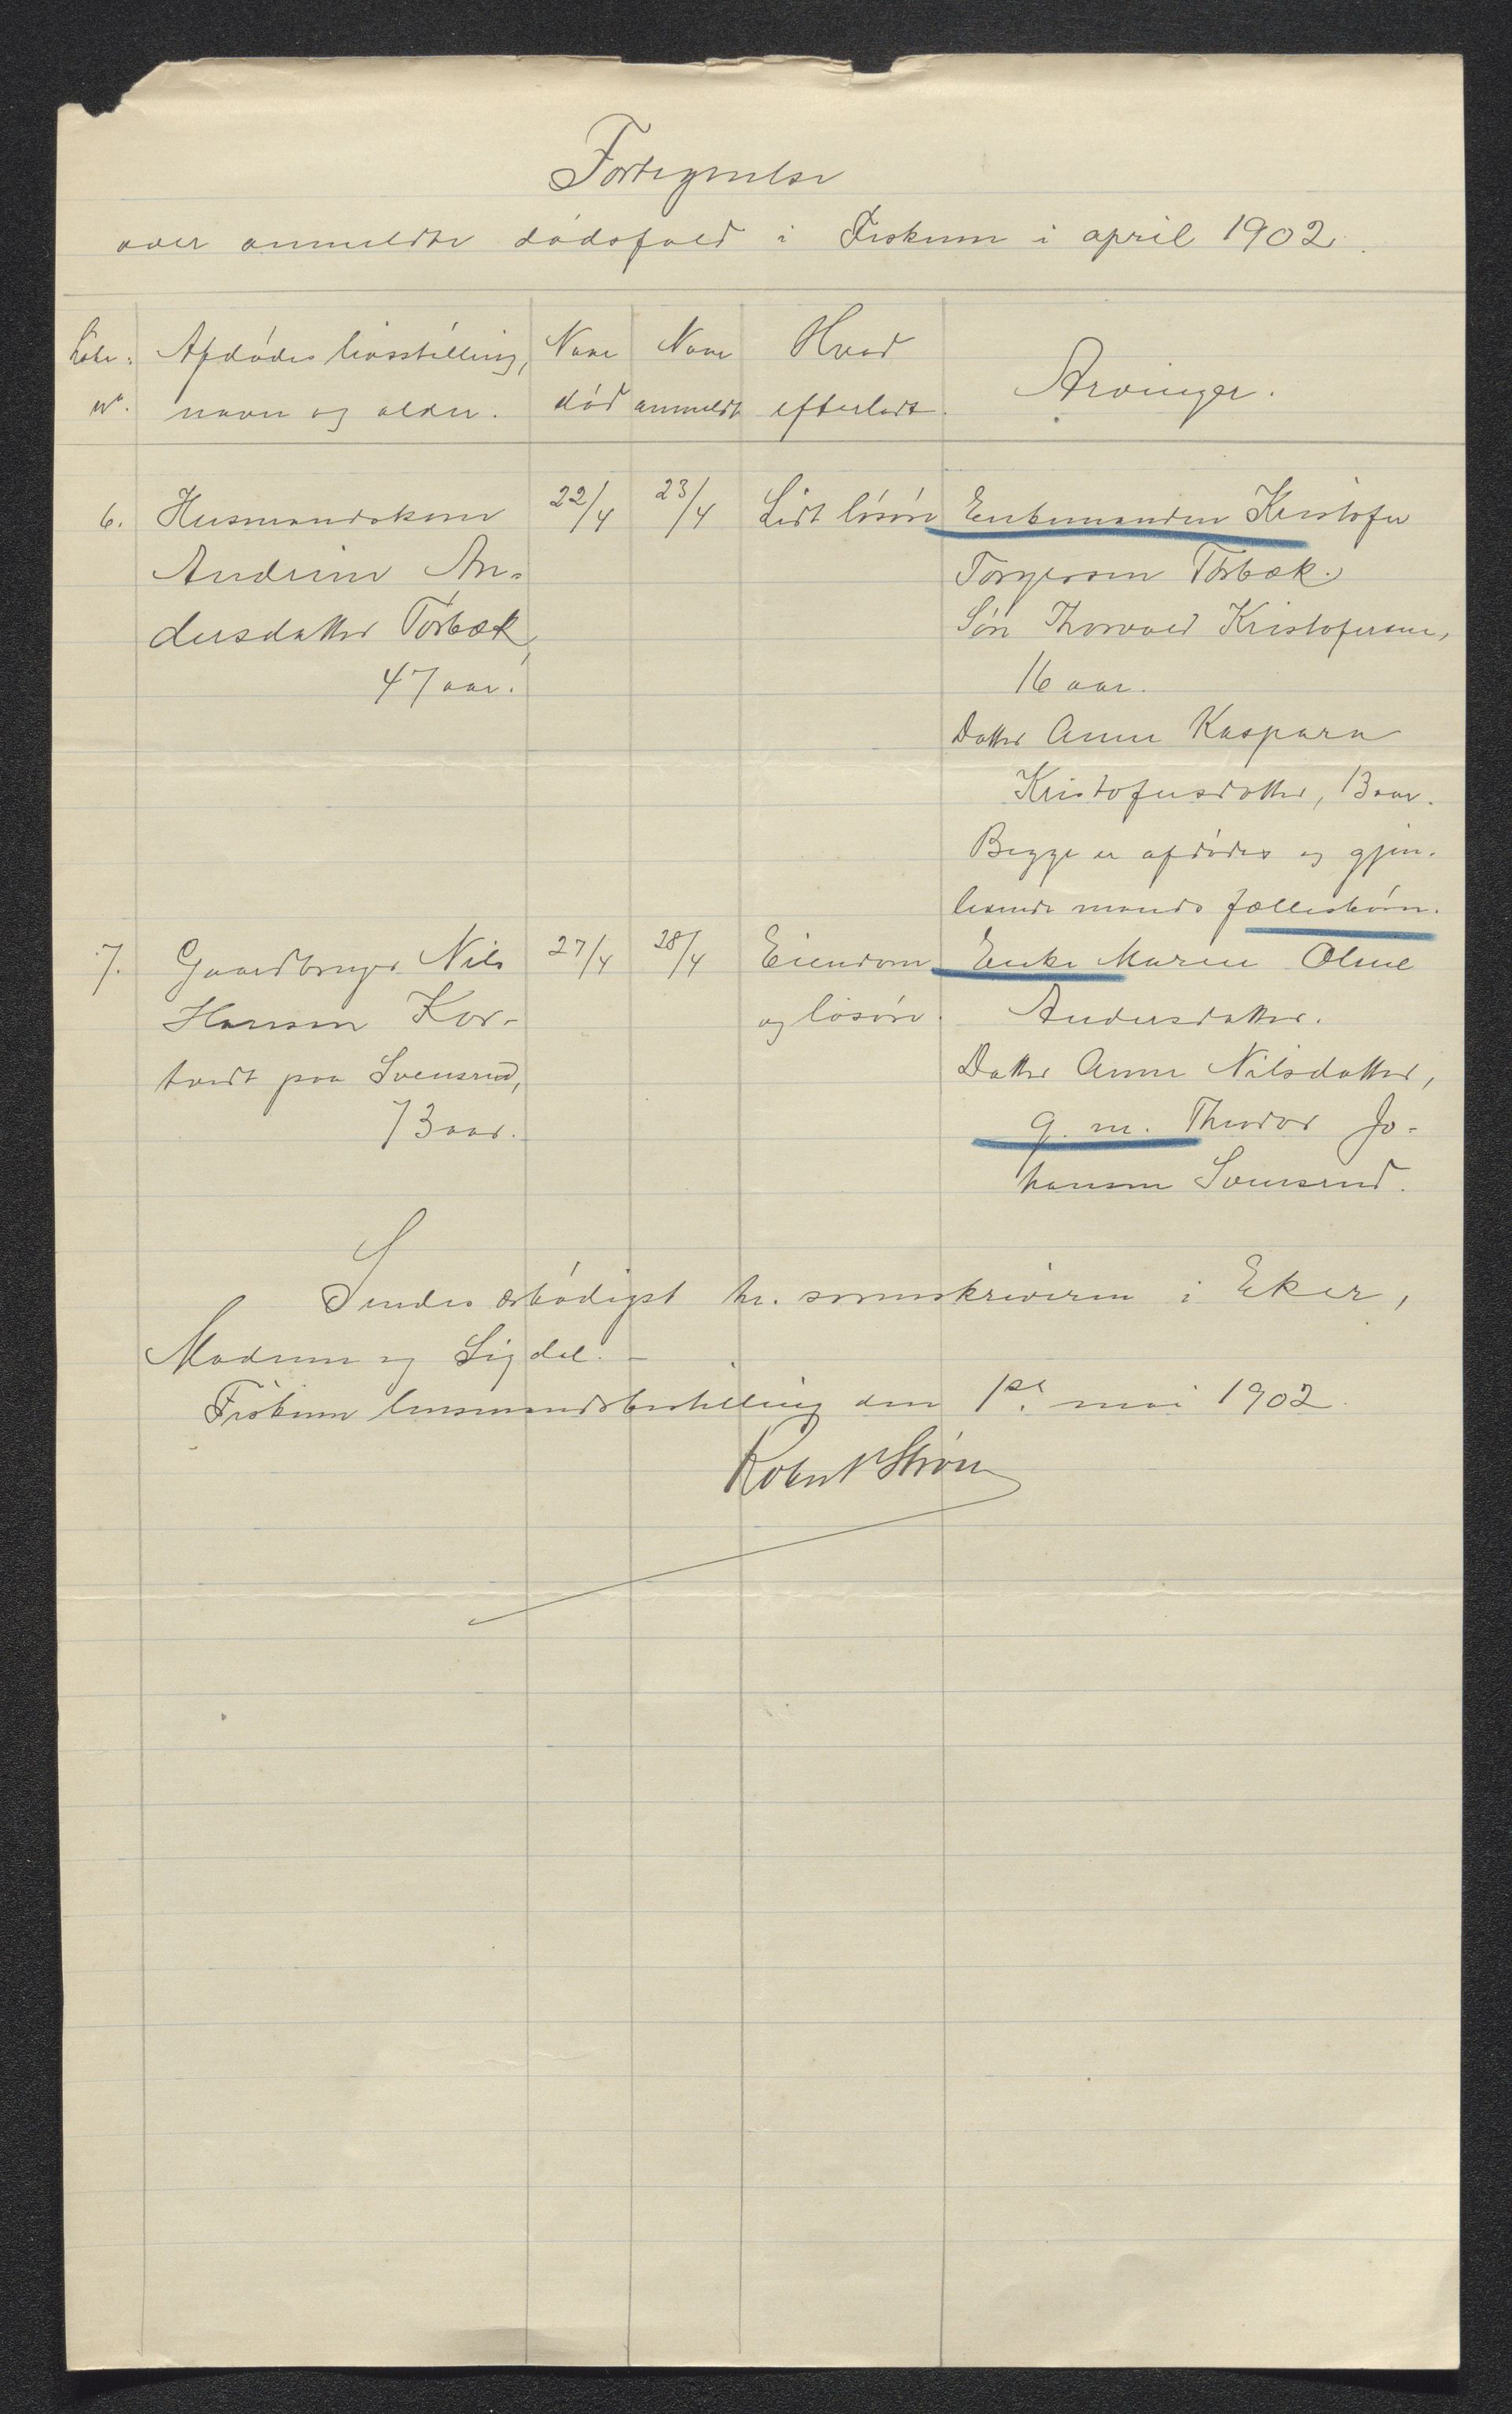 Fortegnelse
over anmeldte dødsfald i Fiskum i april 1902.
Løbe-
no.
Afdødes livsstilling,
navn og alder.
Naar
død
Naar
anmeldt
Hvad
efterladt.
Arvinger.
6.
Husmandskone
Andrine An-
dersdatter Torbæk,
47 aar.
22/4
23/4
Lidt løsøre
Enkemanden Kristofer
Torgersen Torbæk.
Søn Thorvald Kristofersen,
16 aar.
Datter Anne Kaspara
Kristofersdatter, 13 aar.
Begge er afdødes og gjen-
levende mands fællesbørn.
7.
Gaardbruger Nils
Hansen Kor-
tvedt paa Svensrud,
73 aar.
27/4
28/4
Eiendom
og løsøre.
Enke Maren Oline
Andersdatter.
Datter Anne Nilsdatter,
g. m. Theodor Jo-
hansen Svensrud.
Sendes ærbødigst hr. sorenskriveren i Eker,
Modum og Sigdal. –
Fiskum lensmandsbestilling den 1ste mai 1902.
Robert Strøm